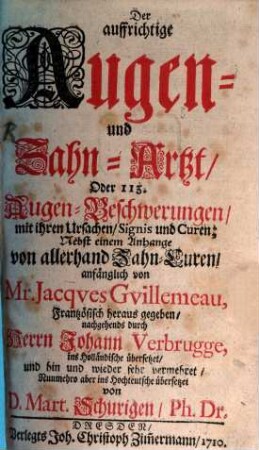 Der
auffrichtige
Augen-
und
Zahn-Artzt/
Oder 113.
Augen-Beschwerungen/
mit ihren Ursachen/ Signis und Curen;
Nebst einem Anhange
von allerhand Zahn-Curen/
anfänglich von
Mr. Jacqves Gvillemeau,
Frantzösisch heraus gegeben/
nachgehends durch
Herrn Johann Verbrugge,
ins Holländische übersetzet/
und hin und wieder sehr vermehret/
Nunmehro aber ins Hochteutsche übersetzet
von
D. Mart. Schurigen/ Ph. Dr.
DRESDEN/
Verlegts Joh. Christoph Zim̃ermann/ 1710.